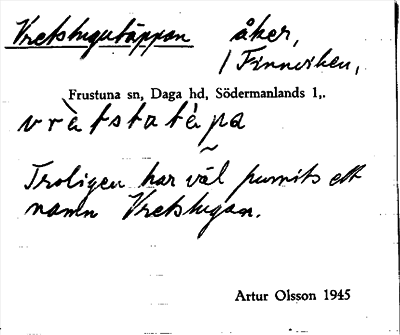 Vretstugutäppan åker,
/ Finnviken,
Frustuna sn, Daga hd, Södermanlands l,.
vrètstatépa
Troligen har väl funnits ett
namn Vretstugan.
Artur Olsson 1945